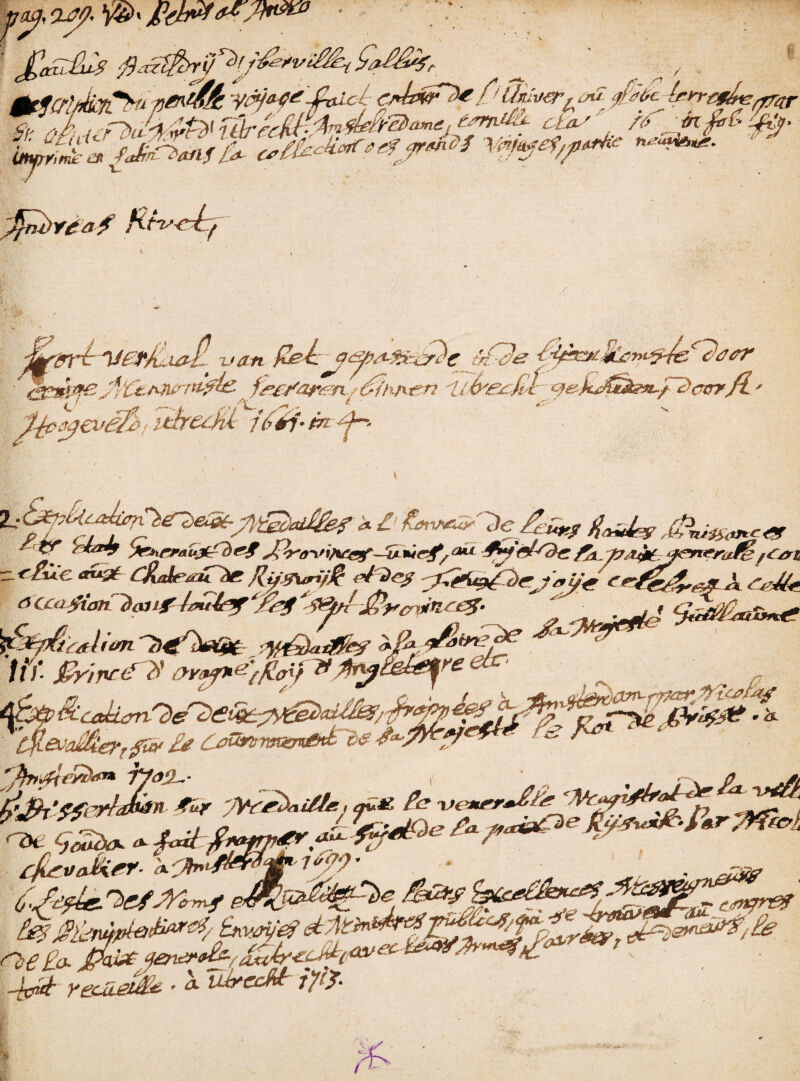 pag. 209. Vid. Petrus ab Andlo
Paulus Bauldrij d' jberville, Gallus,
Description du penible voyage faict entour de l'Univer, ou globe terrestre, par
Sr. olivier du Nort d' Utrecht. Amstelredame, Cornille Cla' 16 in fol. fig.
imprimé en Latin dans la collection des grands Voijages, partie neuvieme.
Andreas Rivet,
Kort verhaal van het gepasserde in de bijeenkomste door
eenige Mennoniste Leeraren, binnen Utrecht gehouden, door A.
Hoogeveld, utrecht 1661. in 4.
2. Explication de deux Medailles à l' honneur de leurs hautes Puissances
les Etats Generaux des Provinces-unies, au sujet de la paix generale, con
= clüe aux Chateau de Rijswijk et des Feux de joije celebrez à cette
occasion dans toutes les sept Provinces.
3. Explication de deux Medailles à la gloire de Sa Majesté Guillaume
III. Prince d' oragne, Roij d' Angleterre etc.
4 Explication de deux Medailles, frappées à Amsterdam, par Nicolas
Chevallier, sur le Couronnement de Sa Majesté le Roi de Prisse. à
Amsterdam 1702.
5. Dissertation sur Medaille, que le venerable Magistrat de la vill
de Gouda a fait frapper au sujet de la paix de Rijswik. Par Nicol
chevalier. à Amsterdam 1699.
6. Liste des Noms et Qualitez de leurs Excellences, Messeigneurs
les Plenijptentiares, Envoijes et Ministres publics, qui se trouvent au congres
de la Paix generale, a utrecht, avec leurs Armes, Lavrées, et demeurs, le
tout recueille. à Utrecht 1713.